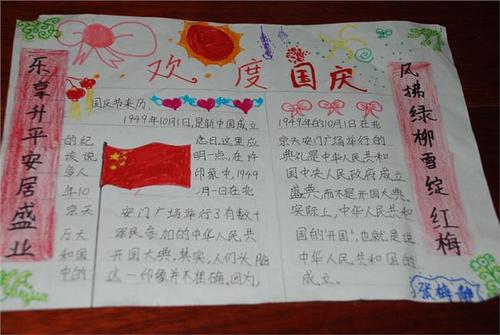 欢度国庆
东享升平安居盛业
风拂绿柳雪绽红梅
国庆节来历
1949年10月1日,是新中国成立
的纪 念日,这里应
该说 明一点,在许
多人 印象中,1949
年10 月一日在北
京天
安门广场举行了有数十
万大 军民参加的中华人民共
和国 开国大典.其实,人们头脑
中的 这一印象并不准确.因为,
1949年的10月1日在北
京天安门广场举行的
典礼是中华人民共和
国中央人民政府成立
盛典,而不是开国大典.
实际上,中华人民共和
国的"开国",也就是说
中华人民共和国的
成立.
张梅静